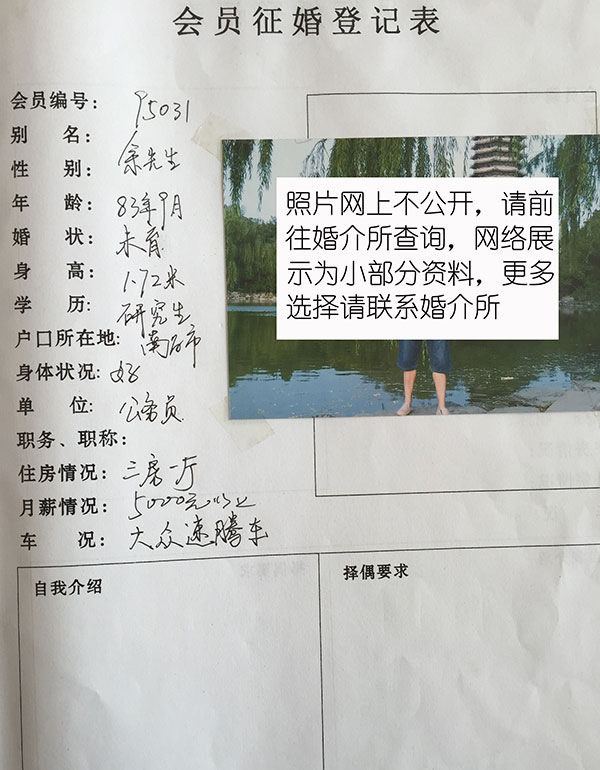 会员征婚登记表
会员编号: 95031
别 名: 余先生
性 别:
年 龄: 83年9月
婚 状: 未育
身 高: 1.72米
学 历: 研究生
户口所在地: 南石市
身体状况: 好
单 位: 公务员
职务、职称:
住房情况: 三房一厅
月薪情况: 5000元以上
车 况: 大众速腾车
照片网上不公开，请前
往婚介所查询，网络展
示为小部分资料，更多
选择请联系婚介所
自我介绍
择偶要求